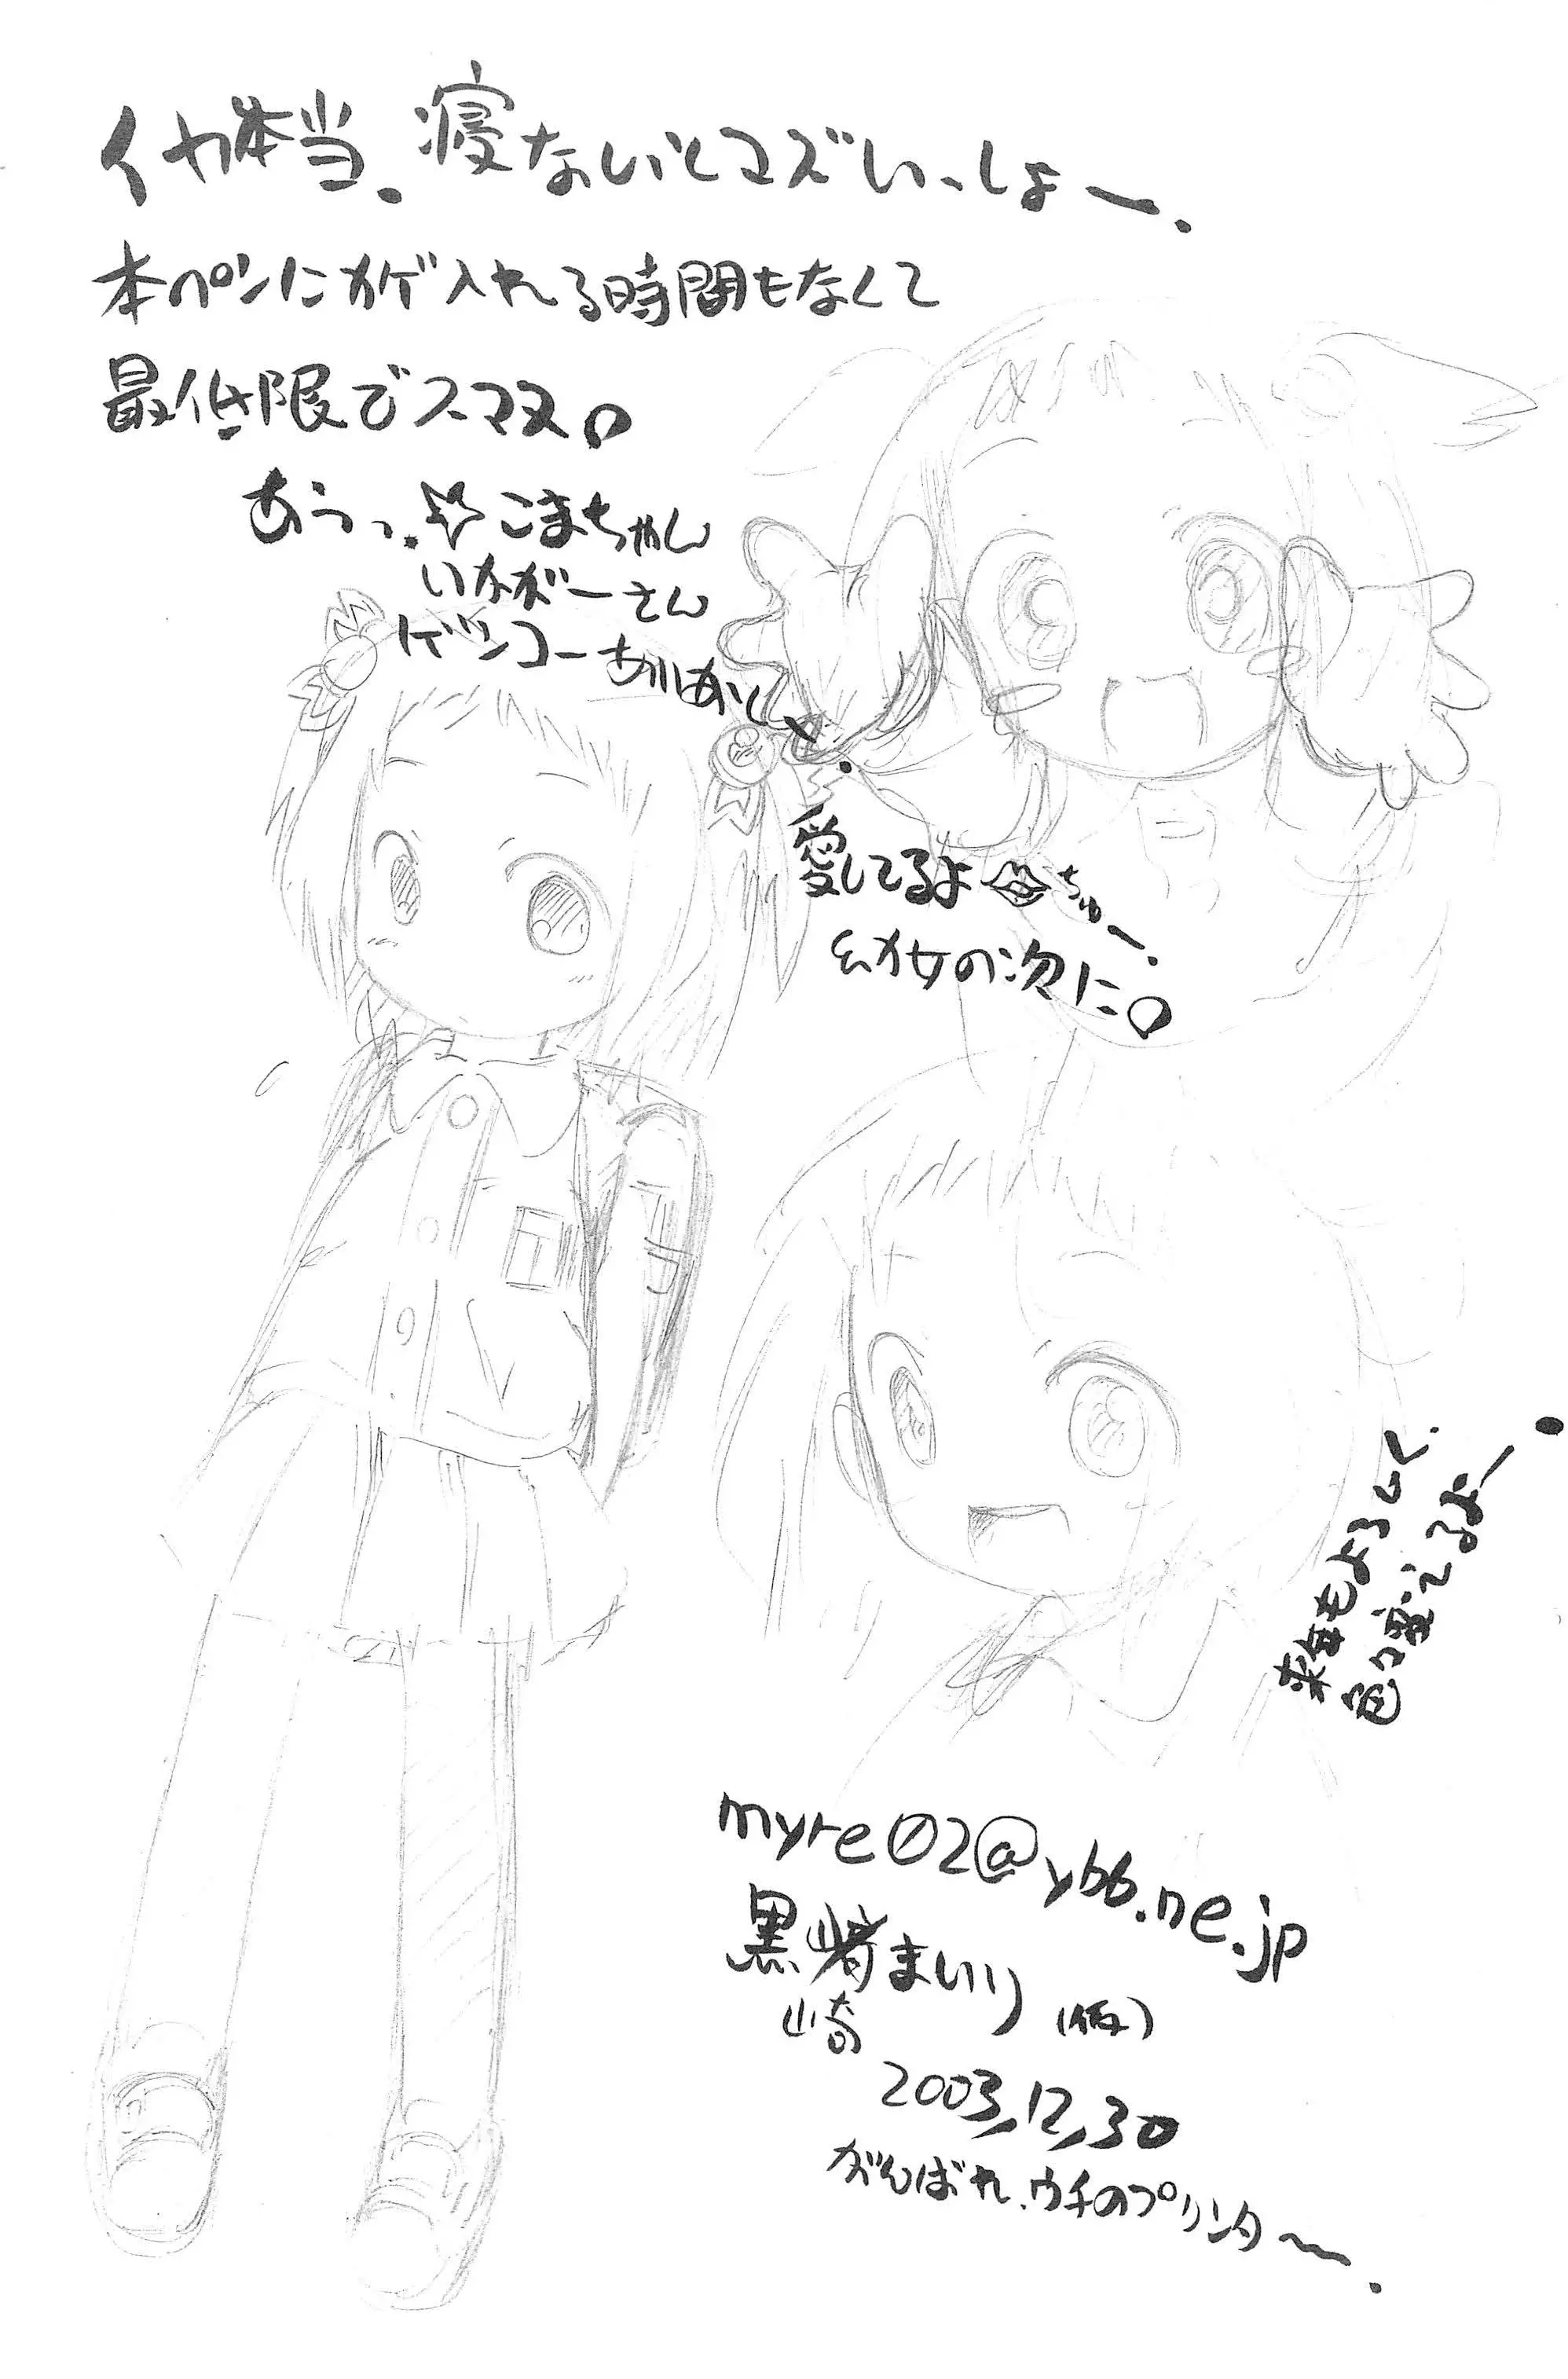 イヤ本当、寝ないとマズいっしょー、
本ペンにカゲ入れる時間もなくて
最低限でスマヌ。
あうっ、☆こまちゃん
いかがーさん
ゲンコーありあとし、
愛してるよ ちゅー、
幼女の次に。
来年もよろしく、
色々変えるよー
myre02@ybb.ne.jp
黒崎まいり(仮)
崎
2003,12,30
がんばれ、ウチのプリンター〜、